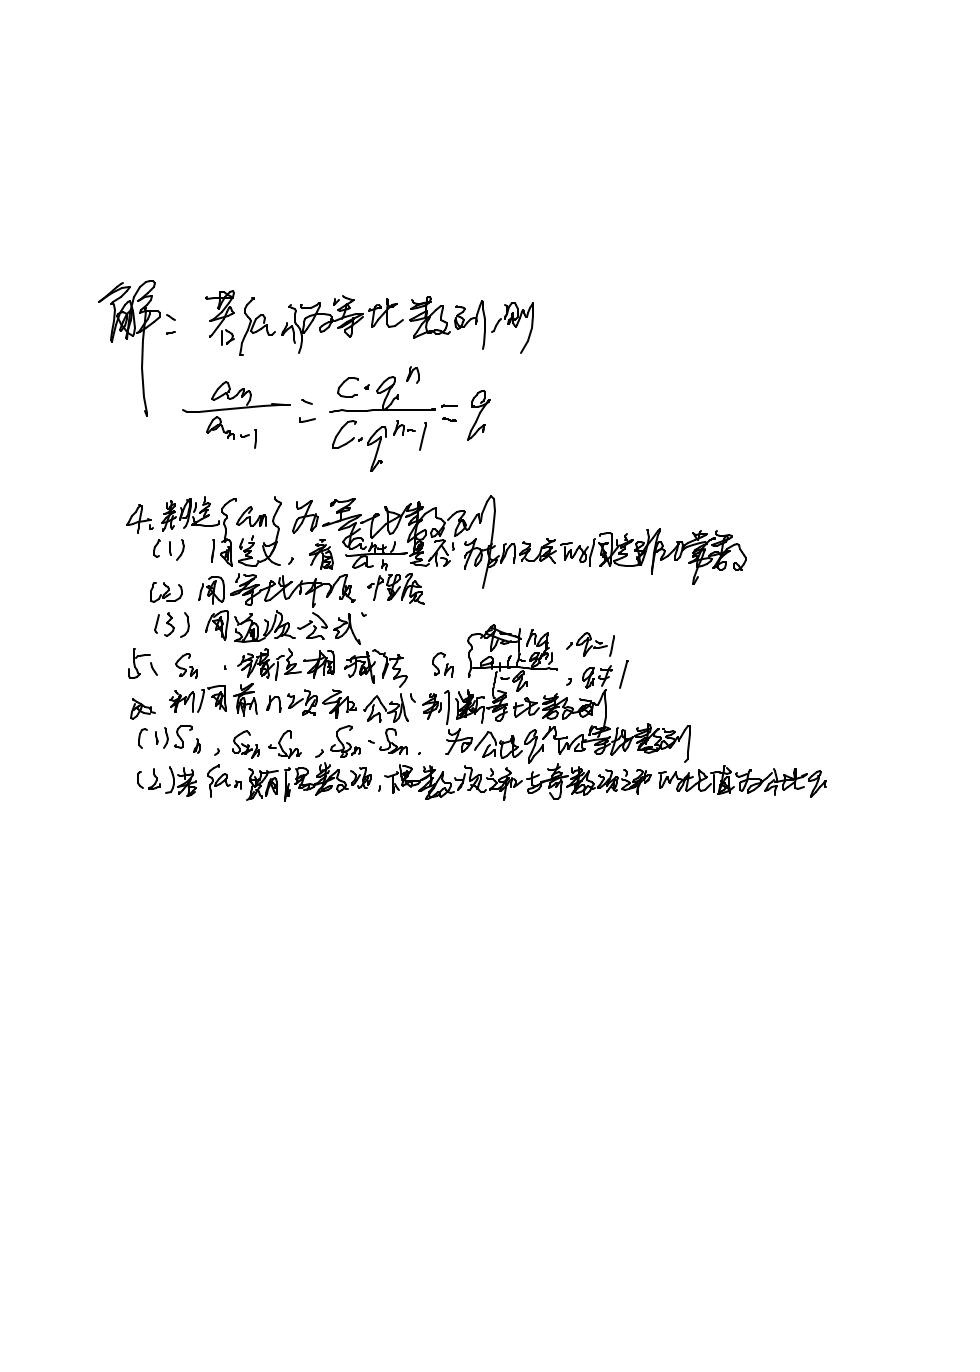 解：若{an}为等比数列,则
an/an-1 = C·q^n/C·q^n-1 = q
4.判定{an}为等比数列
(1) 用定义,看an+1/an是否为与n无关的固定非0常数
(2)用等比中项性质
(3)用通项公式
5、Sn,错位相减法 Sn{ na1, q=1
a1(1-qn)/1-q, q≠1
利用前n项和公式判断等比数列
(1)Sn, S2n-Sn, S3n-S2n. 为公比q^n的等比数列
(2)若{an}有偶数项,偶数项之和与奇数项之和的比值为公比q